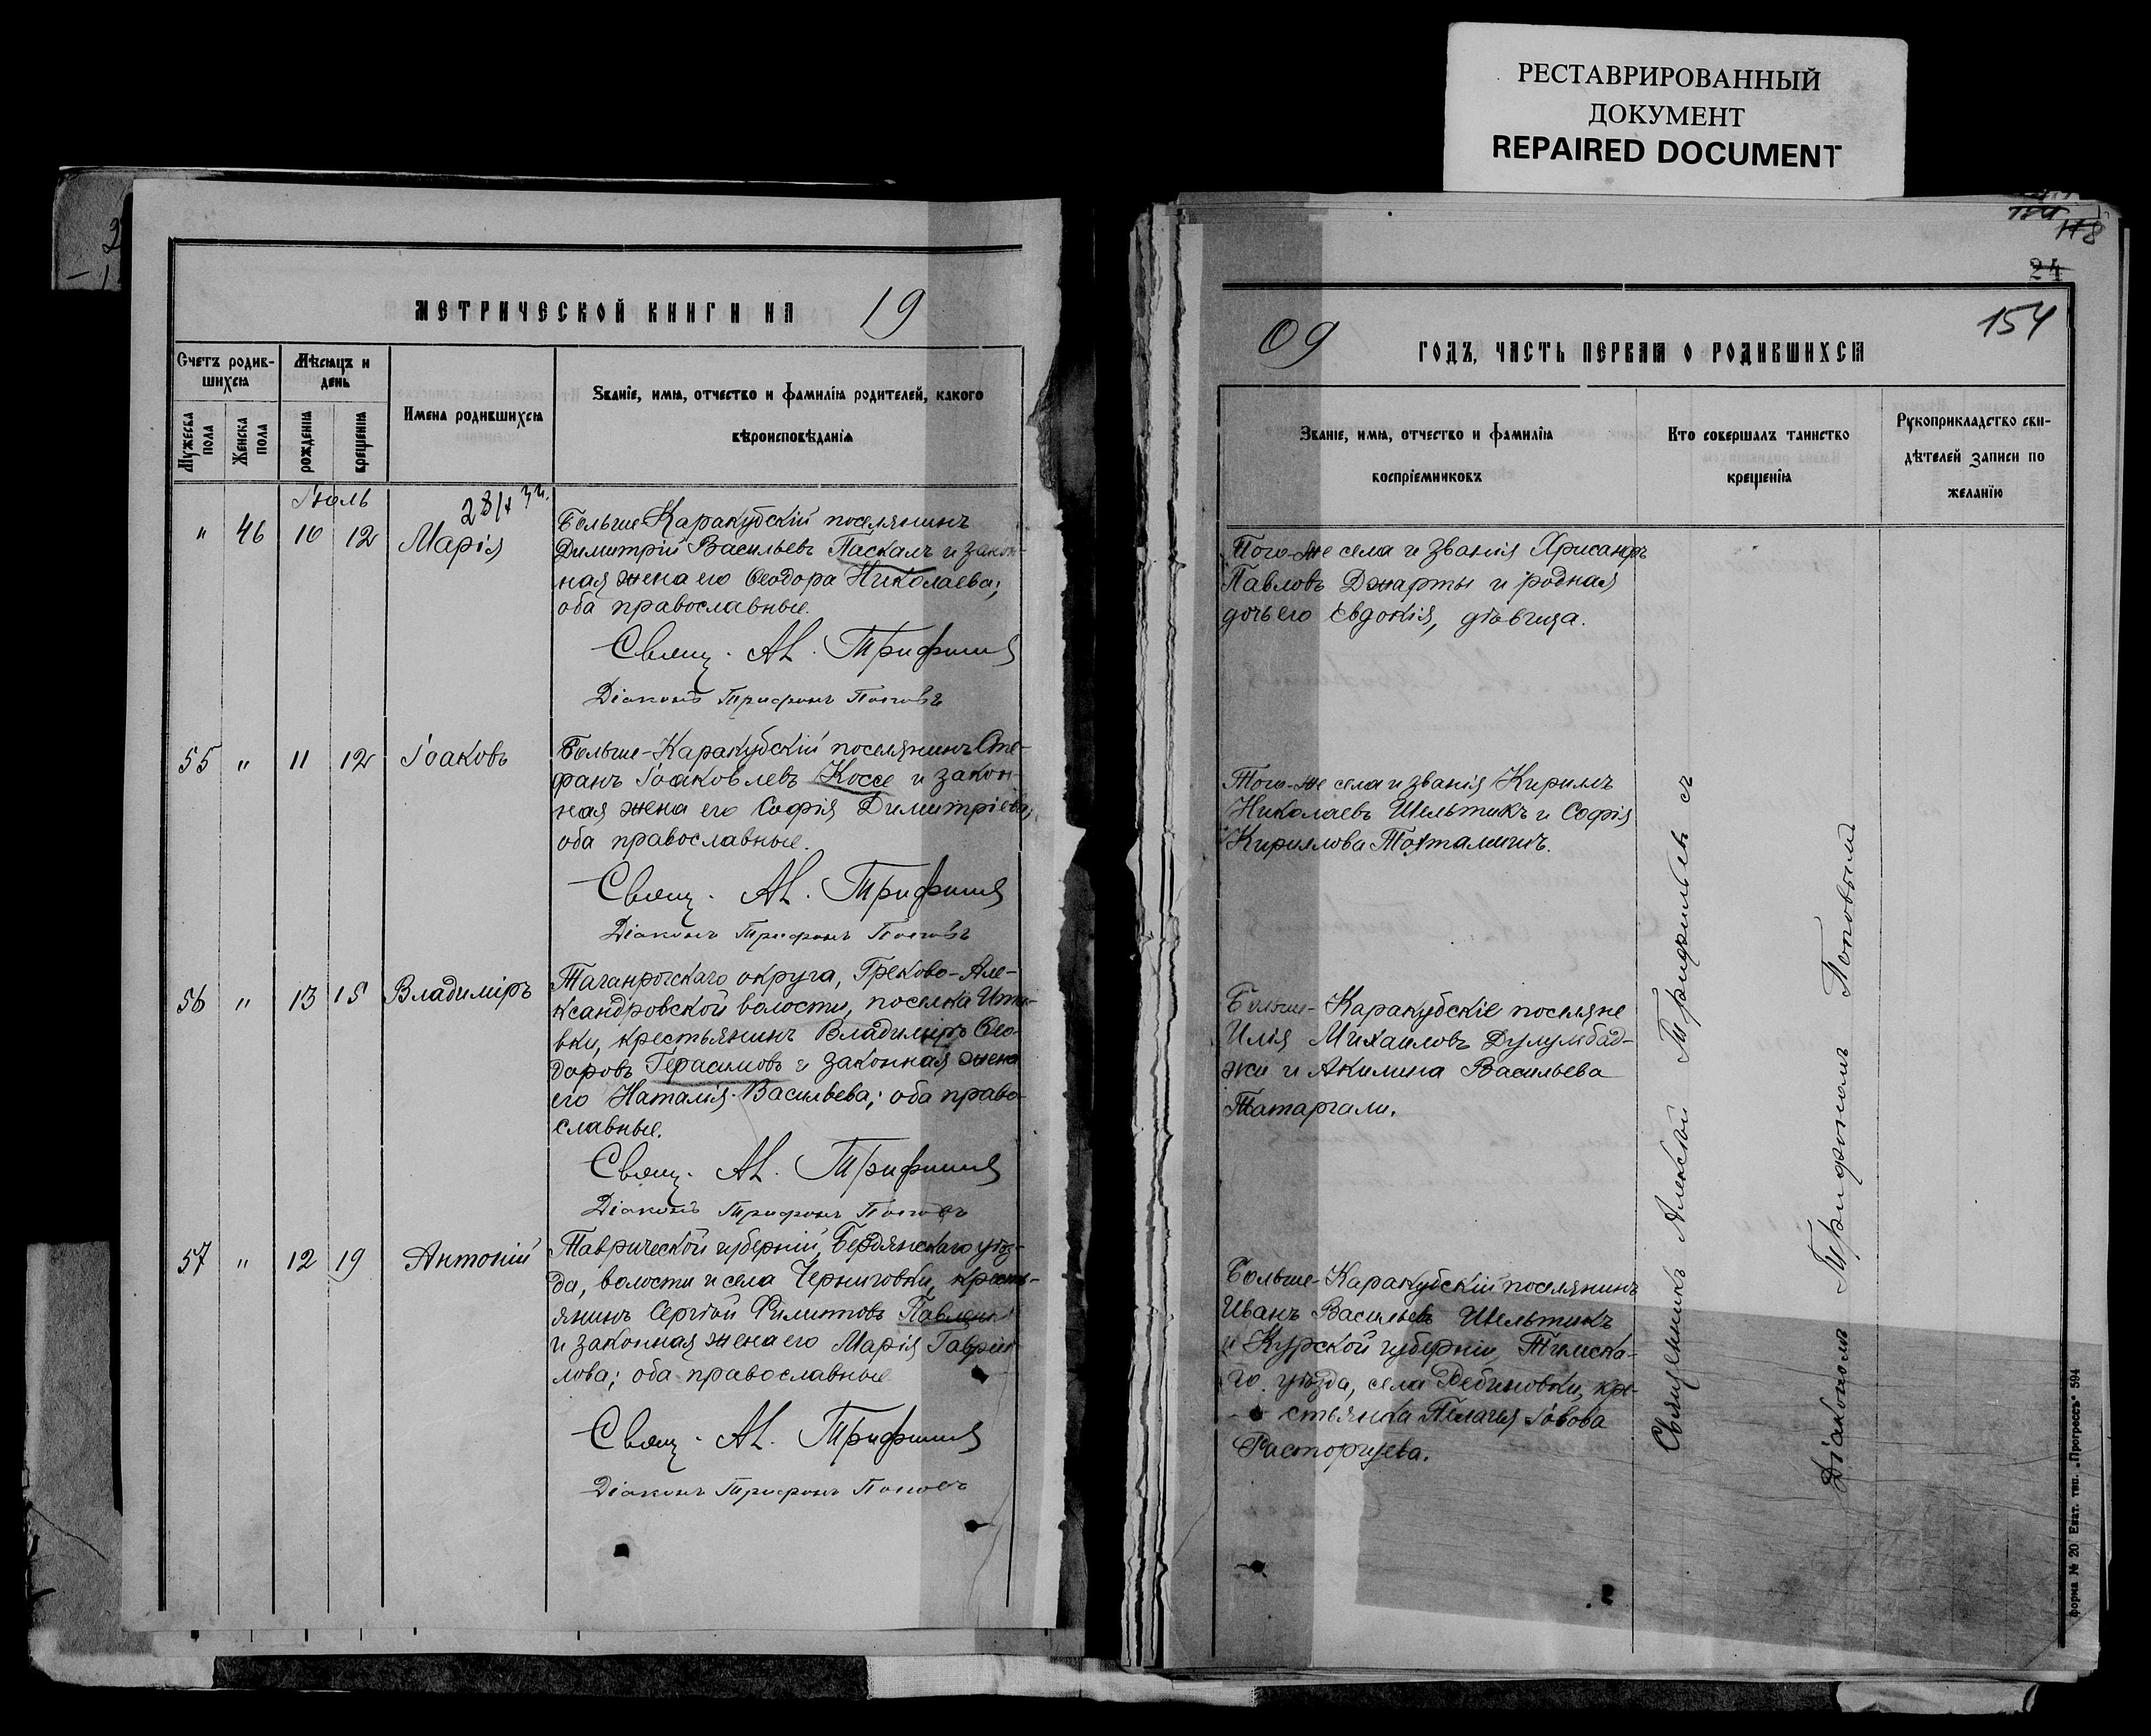 РЕСТАВРИРОВАННЫЙ
ДОКУМЕНТ
REPAIRED DOCUMENT
МЕТРИЧЕСКОЙ КНИГИ НА 19
Счетъ родив-
шихся
Мѣсяцъ и
день
Имена родившихся
Званіе, имя, отчество и фамилія родителей, какого
вѣроисповѣданія
Мужеска
пола
Женска
пола
рожденія
крещенія
Іюль
" 46 10 12 Марія
Больше-Каракубскій поселянинъ
Димитрій Васильевъ Паскалъ и закон-
ная жена его Ѳеодора Николаева;
оба православные.
Свящ. Ал. Трифилиевъ
Діаконъ Трифонъ Поповъ
55 " 11 12 Іоаковъ
Больше-Каракубскій поселянинъ Сте-
фанъ Іоаковлевъ Коссе и закон-
ная жена его Софія Димитріева;
оба православные.
Свящ. Ал.
Діаконъ Трифонъ Поповъ
56 " 13 15 Владиміръ
Таганрогскаго округа, Греково-Але-
ксандровской волости, поселка
вки, крестьянинъ Владиміръ Ѳео-
доровъ Герасимовъ и законная жена
его Наталія Васильева; оба право-
славные.
Свящ. Ал.
Діаконъ Трифонъ Поповъ
57 " 12 19 Антоній
Таврической губерніи, Бердянскаго уѣз-
да, волости и села Черниговки, кресть-
янинъ Сергѣй Филиповъ
и законная жена его Марія Гаврии-
лова; оба православные
Свящ. Ал.
Діаконъ Трифонъ Поповъ
118
24
154
09 ГОДЪ, ЧАСТЬ ПЕРВАЯ О РОДИВШИХСЯ
Званіе, имя, отчество и фамилія
воспріемниковъ
Кто совершалъ таинство
крещенія
Рукоприкладство сви-
дѣтелей записи по
желанію
Того-же села и званія Хрисанфъ
Павловъ Джарты и родная
дочь его Евдокія, дѣвица.
Того-же села и званія Кириллъ
Николаевъ Шельтикъ и Софія
Кириллова
Больше-Каракубскіе поселяне
Илія Михаиловъ Дулумбад-
жи и Акилина Васильева
Татаргали.
Больше-Каракубскій поселянинъ
Иванъ Васильевъ Шельтикъ
и Курской губерніи, Тимска-
го уѣзда, села кре-
стьянка Пелагія Іовова
Расторгуева.
Священникъ Алексѣй съ
Діакономъ Трифономъ Поповымъ
форма № 20 Екат. тип. „Прогрессъ" 594